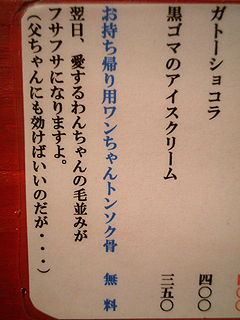 ガトーショコラ 四〇〇
黒ゴマのアイスクリーム 三五〇
お持ち帰り用ワンちゃんトンソク骨 無料
翌日、愛するわんちゃんの毛並みが
フサフサになりますよ。
(父ちゃんにも効けばいいのだが・・・)